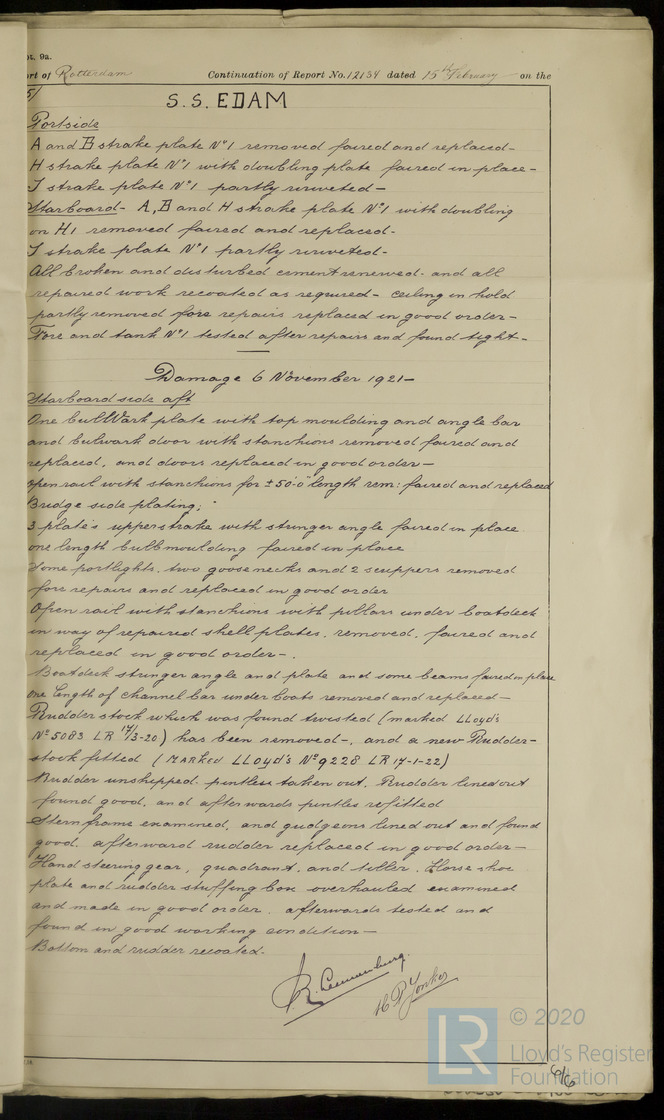 pt. 9a.
rt of Rotterdam Continuation of Report No. 12134 dated 15th February on the
5/
S.S. EDAM
Portside
A and B strake plate No 1 removed faired and replaced-
H strake plate No 1 with doubling plate faired in place-
J strake plate No 1 partly reriveted-
Starboard- A, B and H strake plate No 1 with doubling
on H1 removed faired and replaced-
J strake plate No 1 partly reriveted-
All broken and disturbed cement renewed. and all
repaired work recoated as required- ceiling in hold
partly removed fore repairs replaced in good order-
Fore and tank No 1 tested after repairs and found tight-
Damage 6 November 1921-
Starboard side aft
One bullWark plate with top moulding and angle bar
and bulwark door with stanchions removed faired and
replaced, and doors replaced in good order-
open rail with stanchions for ±50'0" length rem: faired and replaced
Bridge side plating;
3 plate's upperstrake with stringer angle faired in place
one length bulbmoulding faired in place
Some portlights, two goosenecks and 2 scuppers removed
fore repairs and replaced in good order
Open rail with stanchions with pillars under boatdeck
in way of repaired shell plates, removed, faired and
replaced in good order-.
Boatdeck stringer angle and plate and some beams faired in place
one length of channel bar under boats removed and replaced-
Rudder stock which was found twisted (marked LLoyd's
No 5083 LR 17/3-20) has been removed-, and a new Rudder-
stock fitted (MARKED LLOYD'S No 9228 LR 17-1-22)
Rudder unshipped. pintles taken out, Rudder lined out
found good, and afterwards pintles refitted
Sternframe examined, and gudgeons lined out and found
good. afterward rudder replaced in good order-
Hand steering gear, quadrant, and tiller. Horse shoe
plate and rudder stuffing box overhauled examined
and made in good order. afterwards tested and
found in good working condition-
Bottom and rudder recoated.
LR
© 2020
Lloyd's Register
Foundation
6/6